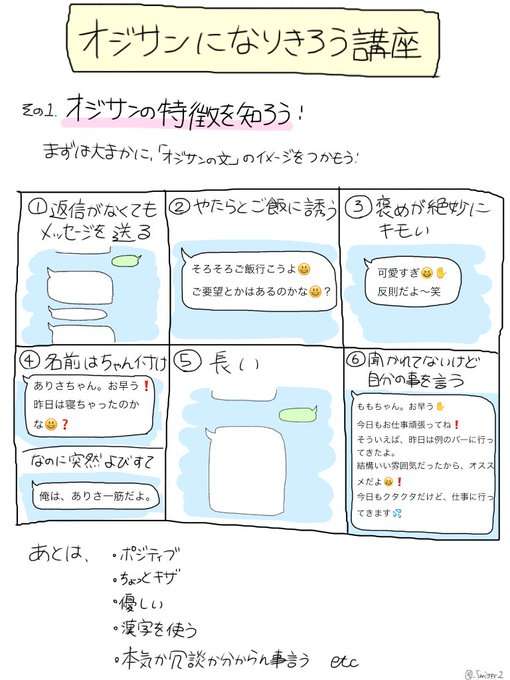 オジサンになりきろう講座
その1. オジサンの特徴を知ろう!
まずは大まかに,「オジサンの文」のイメージをつかもう!
①返信がなくても
メッセージを送る
②やたらとご飯に誘う
そろそろご飯行こうよ😀
ご要望とかはあるのかな😀?
③褒めが絶妙に
キモい
可愛すぎ😀✋
反則だよ〜笑
④名前はちゃん付け
ありさちゃん。お早う❗
昨日は寝ちゃったのか
な😀❓
なのに突然よびすて
俺は、ありさ一筋だよ。
⑤長い
⑥聞かれてないけど
自分の事を言う
ももちゃん。お早う✋
今日もお仕事頑張ってね❗
そういえば、昨日は例のバーに行っ
てきたよ。
結構いい雰囲気だったから、オスス
メだよ😀❗
今日もクタクタだけど、仕事に行っ
てきます💦
あとは、・ポジティブ
・ちょっとキザ
・優しい
・漢字を使う
・本気か冗談か分からん事言う etc